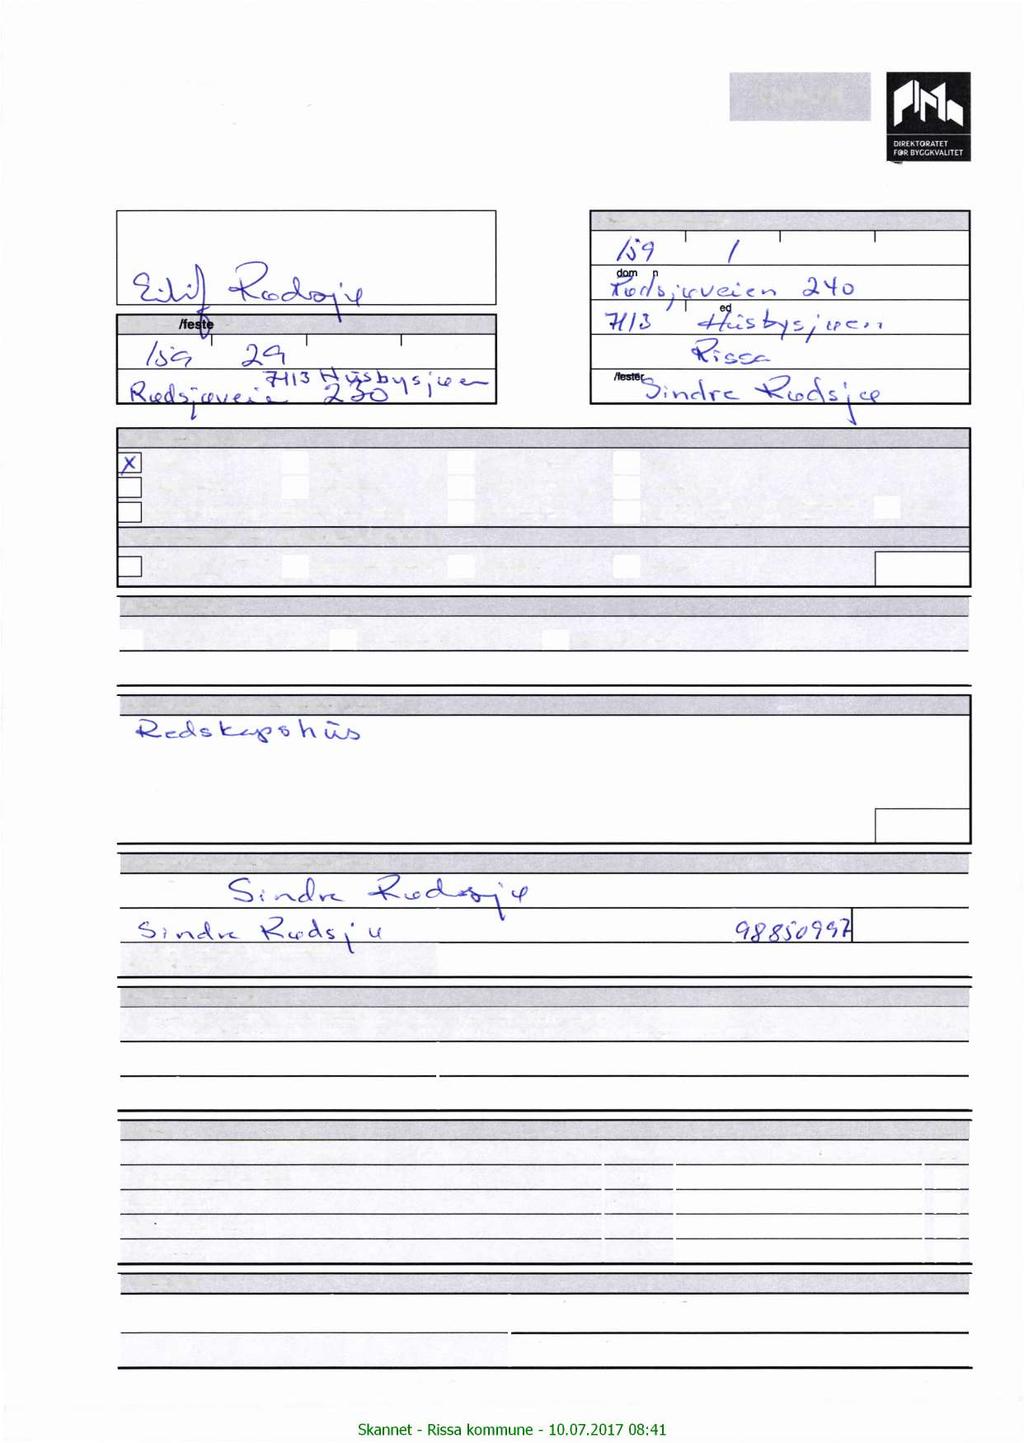 DIREKTORATET
FOR BYGGKVALITET
Eilif Rødsjø
/feste
159 29
7113 Husbysjøen
Rødsjøveien 230
159 1
dom n
Rødsjøveien 240
ed
7113 Husbysjøen
Rissa
/fester
Sindre Rødsjø
X
Redskapshus
Sindre Rødsjø
Sindre Rødsjø 98850997
Skannet - Rissa kommune - 10.07.2017 08:41